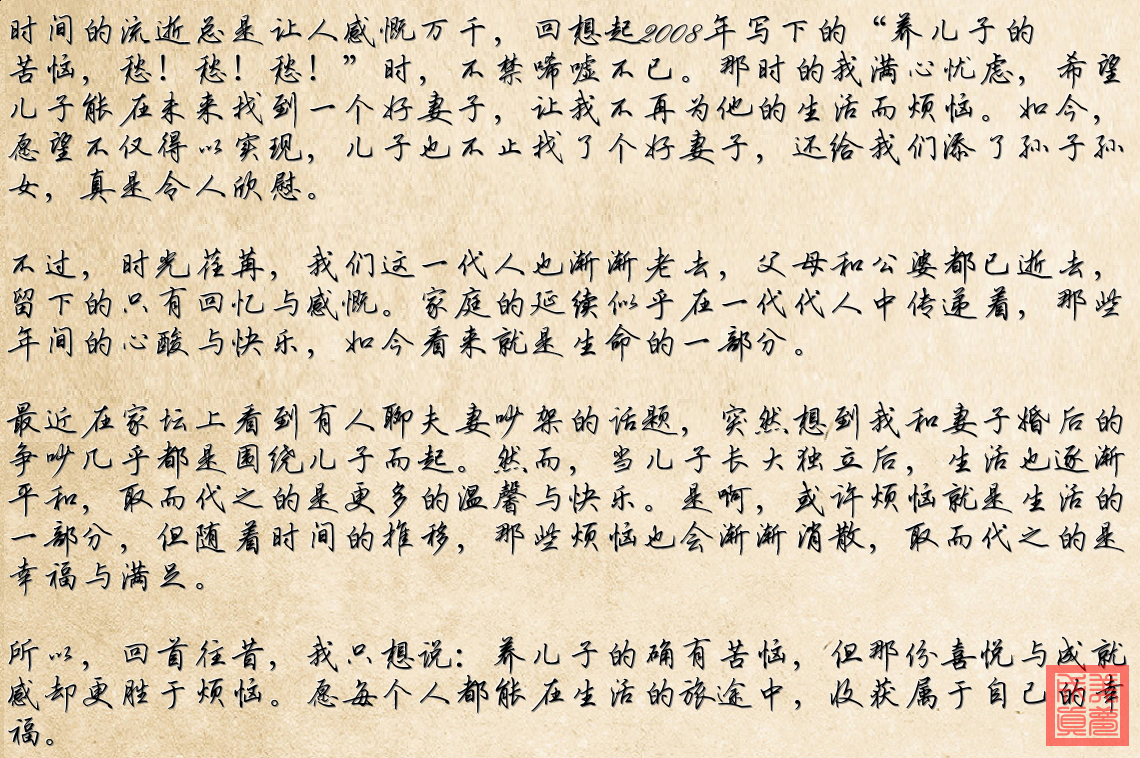 时间的流逝总是让人感慨万千，回想起2008年写下的“养儿子的
苦恼，愁！愁！愁！”时，不禁唏嘘不已。那时的我满心忧虑，希望
儿子能在未来找到一个好妻子，让我不再为他的生活而烦恼。如今，
愿望不仅得以实现，儿子也不止找了个好妻子，还给我们添了孙子孙
女，真是令人欣慰。
不过，时光荏苒，我们这一代人也渐渐老去，父母和公婆都已逝去，
留下的只有回忆与感慨。家庭的延续似乎在一代代人中传递着，那些
年间的心酸与快乐，如今看来就是生命的一部分。
最近在家坛上看到有人聊夫妻吵架的话题，突然想到我和妻子婚后的
争吵几乎都是围绕儿子而起。然而，当儿子长大独立后，生活也逐渐
平和，取而代之的是更多的温馨与快乐。是啊，或许烦恼就是生活的
一部分，但随着时间的推移，那些烦恼也会渐渐消散，取而代之的是
幸福与满足。
所以，回首往昔，我只想说：养儿子的确有苦恼，但那份喜悦与成就
感却更胜于烦恼。愿每个人都能在生活的旅途中，收获属于自己的幸
福。